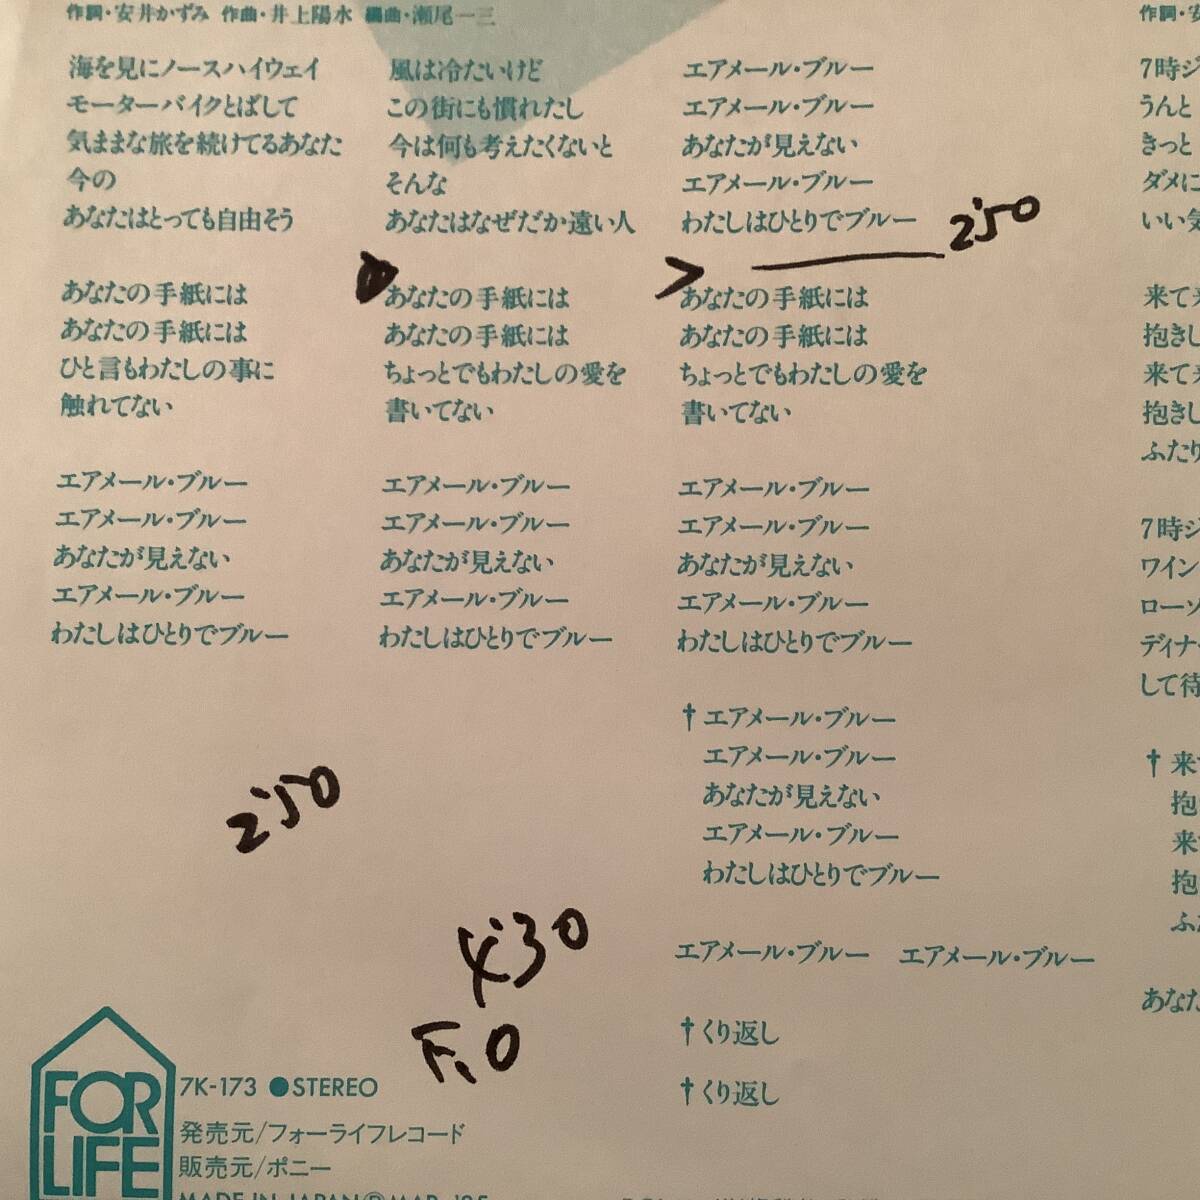 作詞・安井かずみ 作曲・井上陽水 編曲・瀬尾一三
海を見にノースハイウェイ
モーターバイクとばして
気ままな旅を続けてるあなた
今の
あなたはとっても自由そう
あなたの手紙には
あなたの手紙には
ひと言もわたしの事に
触れてない
エアメール・ブルー
エアメール・ブルー
あなたが見えない
エアメール・ブルー
わたしはひとりでブルー
風は冷たいけど
この街にも慣れたし
今は何も考えたくないと
そんな
あなたはなぜだか遠い人
あなたの手紙には
あなたの手紙には
ちょっとでもわたしの愛を
書いてない
エアメール・ブルー
エアメール・ブルー
あなたが見えない
エアメール・ブルー
わたしはひとりでブルー
エアメール・ブルー
エアメール・ブルー
あなたが見えない
エアメール・ブルー
わたしはひとりでブルー
2'50
あなたの手紙には
あなたの手紙には
ちょっとでもわたしの愛を
書いてない
エアメール・ブルー
エアメール・ブルー
あなたが見えない
エアメール・ブルー
わたしはひとりでブルー
†エアメール・ブルー
エアメール・ブルー
あなたが見えない
エアメール・ブルー
わたしはひとりでブルー
エアメール・ブルー エアメール・ブルー
†くり返し
†くり返し
2'50
4'30
F、O
FOR
LIFE
7K-173 ●STEREO
発売元/フォーライフレコード
販売元/ポニー
MADE IN JAPAN Ⓟ MAR. '85
作詞・安
7時ジ
うんと
きっと
ダメに
いい気
来て来
抱きし
来て来
抱きし
ふたり
7時ジ
ワイン
ローソ
ディナー
して待
†来て
抱
来て
抱
ふ
あなた